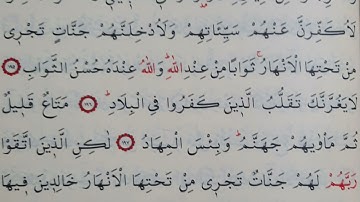 لَاُكَفِّرَنَّ عَنْهُمْ سَيِّـَٔاتِهِمْ وَلَاُدْخِلَنَّهُمْ جَنَّاتٍ تَجْرٖى
مِنْ تَحْتِهَا الْاَنْهَارُۚ ثَوَابًا مِنْ عِنْدِ اللّٰهِؕ وَاللّٰهُ عِنْدَهُ حُسْنُ الثَّوَابِ ﴿١٩٥﴾
لَا يَغُرَّنَّكَ تَقَلُّبُ الَّذٖينَ كَفَرُوا فِى الْبِلَادِؕ ﴿١٩٦﴾ مَتَاعٌ قَلٖيلٌ
ثُمَّ مَاْوٰيهُمْ جَهَنَّمُؕ وَبِئْسَ الْمِهَادُ ﴿١٩٧﴾ لٰكِنِ الَّذٖينَ اتَّقَوْا
رَبَّهُمْ لَهُمْ جَنَّاتٌ تَجْرٖى مِنْ تَحْتِهَا الْاَنْهَارُ خَالِدٖينَ فٖيهَا